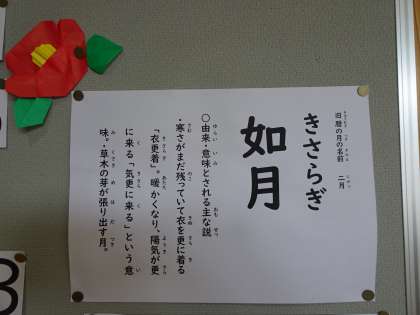 旧暦の月の名前　二月
きさらぎ
如月
○由来・意味とされる主な説
・寒さがまだ残っていて衣を更に着る
「衣更着」。暖かくなり、陽気が更
に来る「気更に来る」という意
味。草木の芽が張り出す月。